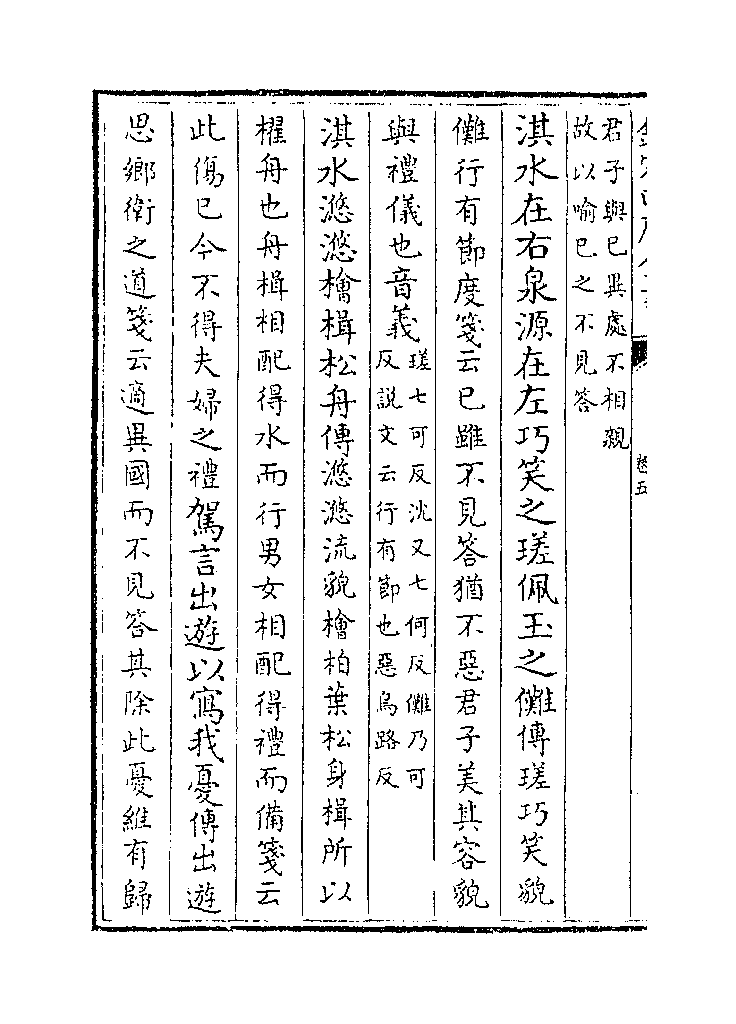 卷五
君子與己異處不相親
故以喻己之不見答
淇水在右泉源在左巧笑之瑳佩玉之儺傳瑳巧笑貌
儺行有節度箋云己雖不見答猶不惡君子美其容貌
與禮儀也音義瑳七可反沈又七何反儺乃可
反說文云行有節也惡烏路反
淇水滺滺檜楫松舟傳滺滺流貌檜柏葉松身楫所以
櫂舟也舟楫相配得水而行男女相配得禮而備箋云
此傷己今不得夫婦之禮駕言出遊以寫我憂傳出遊
思鄉衛之道箋云適異國而不見答其除此憂維有歸